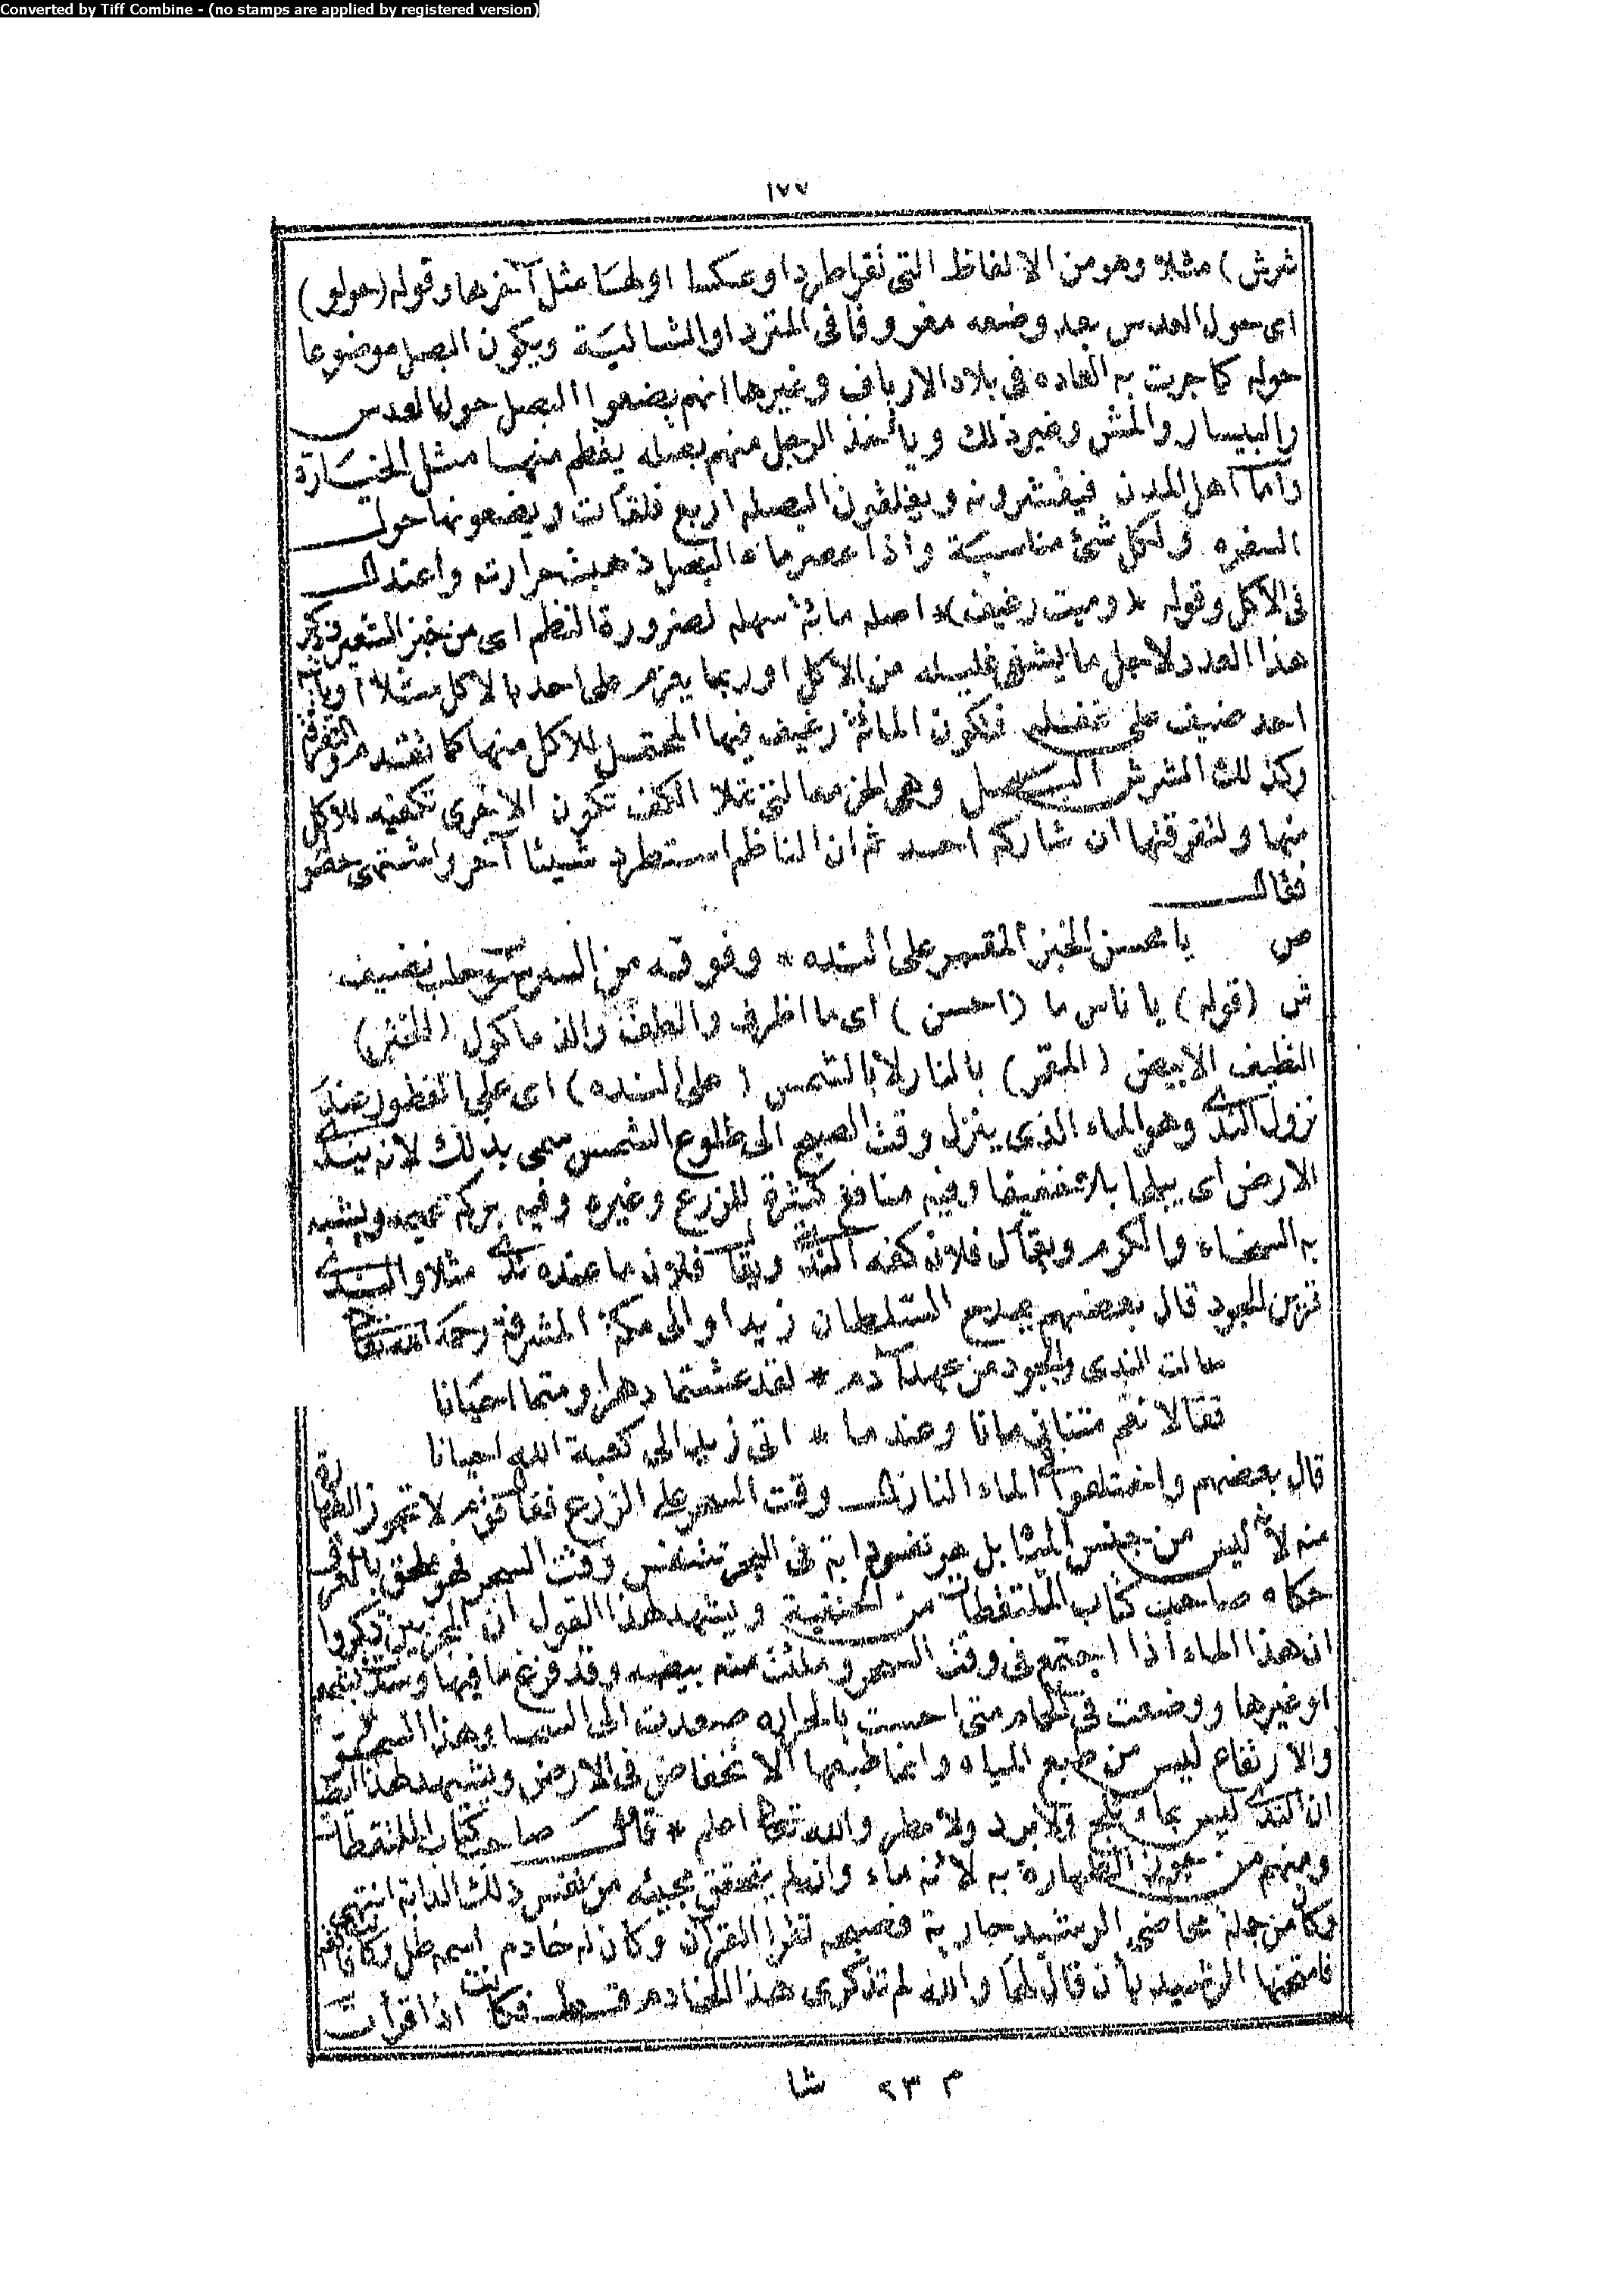 Converted by Tiff Combine - (no stamps are applied by registered version)
١٧٧
شرش) مثلا وهو من الالفاظ التى تقرا طردا وعكسا اولها مثل آخرها وقوله (حولو)
اى حول العدس بعد وضعه مغروفا فى المترد او الشالية ويكون البصل موضوعا
حوله كما جريت به العاده فى بلاد الارياف وغيرها انهم يضعوا البصل حول العدس
والبيسار والمش وغير ذلك وياخذ الرجل منهم بصله يقطم منها مثل الخيارة
واما اهل المدن فيقشرونه ويفلقون البصله اربع فلقات ويضعونها حول
السفره ولكل شئ مناسبة واذا عصر ماء البصل ذهبت حرارته واعتدل
فى الاكل وقوله * (وميت رغيف) * اصله مائة سهله لضرورة النظم اى من خبز الشعير وذكر
هذا العدد لاجل ما يشفى غليله من الاكل او ربما يعزم على احد بالاكل مثلا او ياتيه
احد ضيف على غفله فتكون المائة رغيف فيها للاكل منها كما تقدم والتفرقة
وكذلك الشرش البصل وهى الحزمه التى تملا الكف تكون الاخرى تكفيه للاكل
منها ولتفرقتها ان شاركه احد ثم ان الناظم استطرد شيئا آخر واشتهى حضو
فقال
ص يا محسن الخبز المقمر على النده * وفوقه من السرسوب حلب نضيف
ش (قوله) يا ناس ما (احسن) اى ما اظرف والطف والذ ماكول (الخبز)
النظيف الابيض (المقمر) بالنار لا بالشمس (على النده) اى على الفطور عند
نزول الندى وهو الماء الذى ينزل وقت الصبح الى طلوع الشمس سمى بذلك لانه يندى
الارض اى يبلها بلا خفيفا وفيه منافع كثيرة للزرع وغيره وفيه بركه عميمه ويشبه
به السخاء والكرم ويقال فلان كفه الندى ويقال فلان ما عنده ندى مثلا والندى
قرين الجود قال بعضهم يمدح السلطان زيدا والى مكة المشرفة رحمه الله تعالى
سالت الندى والجود من عهد آدم * لقد عشتما دهرا ومتما احيانا
فقالا نعم متنا زمانا وعندما * اتى زيد الى كعبة الله احيانا
قال بعضهم واختلفوا فى الماء النازل وقت السحر على الزرع فقال قوم لا تجوز الطهارة
منه لانه ليس من جنس الميا بل هو نفس دابة فى البحر تتنفس وقت السحر فهو ملحق بالعرق
حكاه صاحب كتاب الملتقطات من الحنفية ويشهد لهذا القول ان المجربين ذكروا
ان هذا الماء اذا اجتمع فى وقت السحر وملئت منه بيضه وقد فرغ ما فيها وسدت بشمع
او غيرها ووضعت فى الحمام متى احست بالحراره صعدت الى السما وهذا السمو
والارتفاع ليس من طبع المياه وانما طبعها الانخفاض فى الارض ويشهد لهذا ايضا
ان الندى ليس بماء ثلج ولا برد ولا مطر والله تعالى اعلم * قال صاحب كتاب الملتقطات
ومنهم من جوز الطهارة به لانه ماء وان لم يتحقق مجيئه من نفس ذلك الدابة انتهى
وكان من جملة محاضى الرشيد جارية فصيحه تقرا القرآن وكان له خادم اسمه طل وكان
فامتحنها الرشيد بأن قال لها والله لم تذكرى هذا الخادم قط فكانت اذا قرأت
م ٢٣ شا